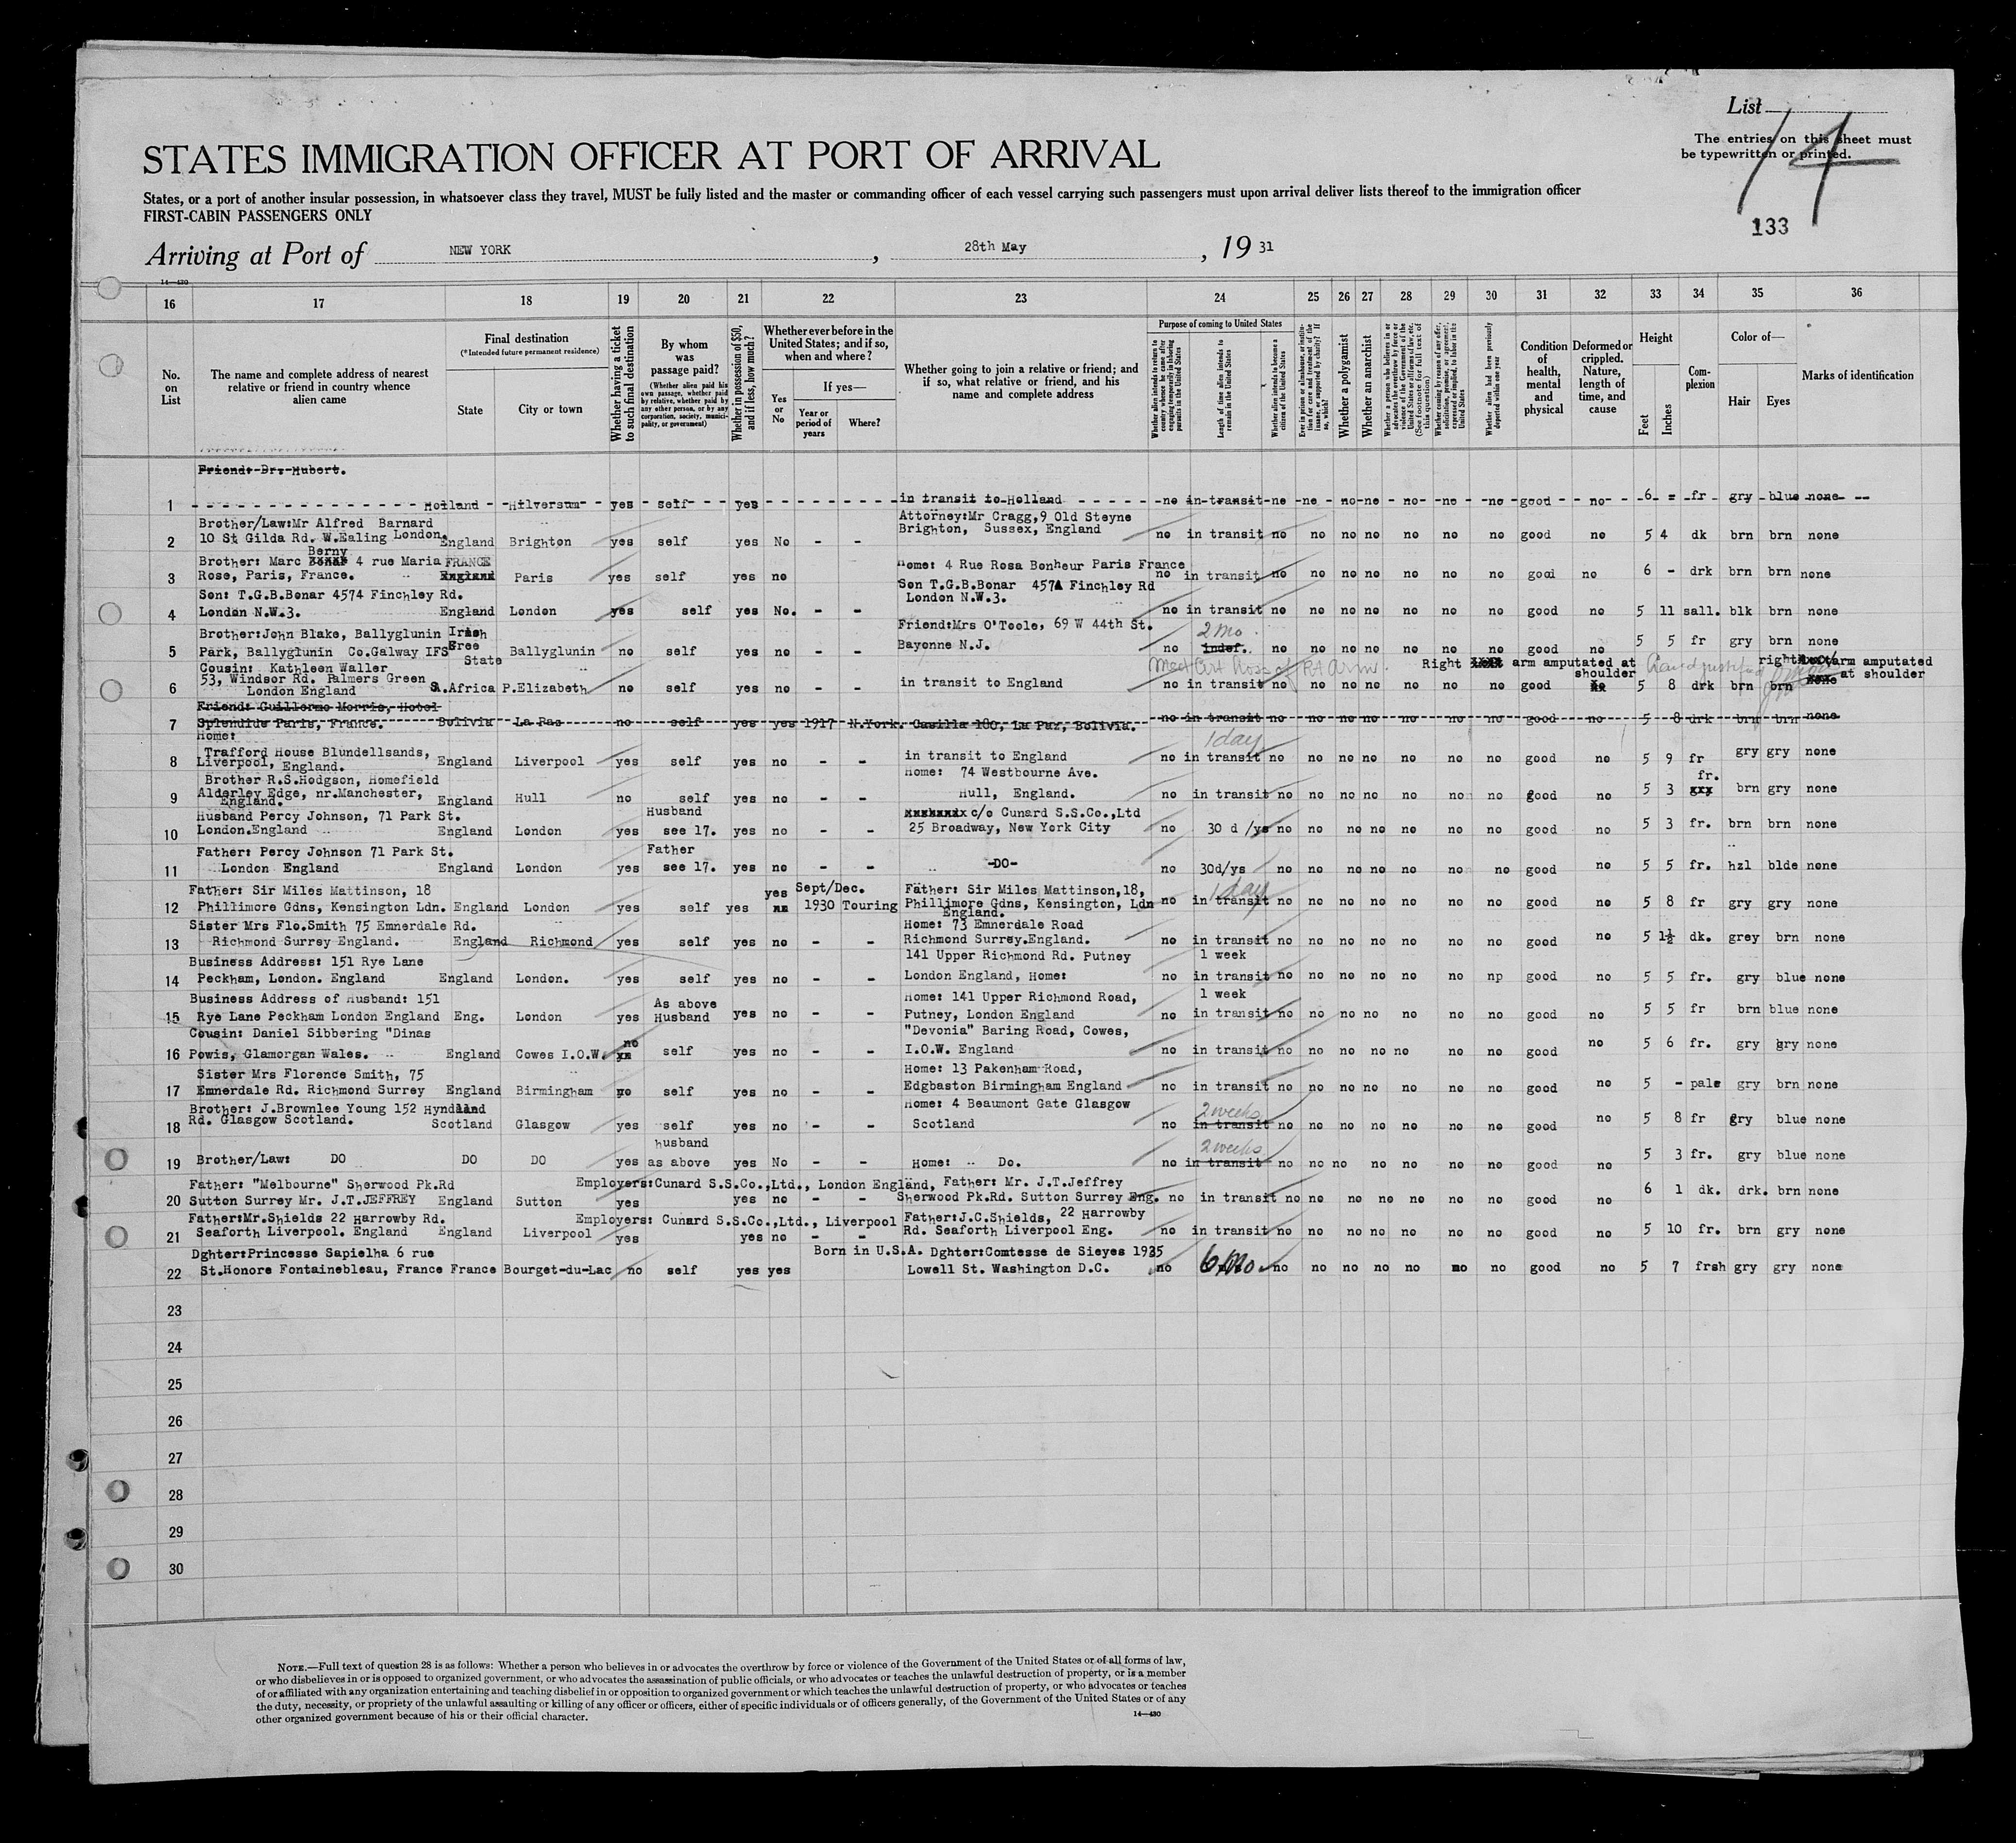 List 14
The entries on this sheet must
be typewritten or printed.
STATES IMMIGRATION OFFICER AT PORT OF ARRIVAL
States, or a port of another insular possession, in whatsoever class they travel, MUST be fully listed and the master or commanding officer of each vessel carrying such passengers must upon arrival deliver lists thereof to the immigration officer
FIRST-CABIN PASSENGERS ONLY
133
Arriving at Port of NEW YORK, 28th May, 1931
14—430
16 17 18 19 20 21 22 23 24 25 26 27 28 29 30 31 32 33 34 35 36
No. on List
The name and complete address of nearest relative or friend in country whence alien came
Final destination
(*Intended future permanent residence)
State
City or town
Whether having a ticket to such final destination
By whom was passage paid?
(Whether alien paid his own passage, whether paid by relative, whether paid by any other person, or by any corporation, society, municipality, or government)
Whether in possession of $50, and if less, how much?
Whether ever before in the United States; and if so, when and where?
Yes or No
If yes—
Year or period of years
Where?
Whether going to join a relative or friend; and if so, what relative or friend, and his name and complete address
Purpose of coming to United States
Whether alien intends to return to country whence he came after engaging temporarily in laboring pursuits in the United States
Length of time alien intends to remain in the United States
Whether alien intends to become a citizen of the United States
Ever in prison or almshouse, or institution for care and treatment of the insane, or supported by charity? If so, which?
Whether a polygamist
Whether an anarchist
Whether a person who believes in or advocates the overthrow by force or violence of the Government of the United States or all forms of law, etc. (See footnote for full text of this question)
Whether coming by reason of any offer, solicitation, promise, or agreement, expressed or implied, to labor in the United States
Whether alien had been previously deported within one year
Condition of health, mental and physical
Deformed or crippled. Nature, length of time, and cause
Height
Feet
Inches
Complexion
Color of—
Hair
Eyes
Marks of identification
Friend: Dr. Hubert.
1 Holland Hilversum yes self yes in transit to Holland no in transit no no no no no no no good no 6 - fr gry blue none
Brother/Law:Mr Alfred Barnard Attorney:Mr Cragg,9 Old Steyne
2 10 St Gilda Rd. W.Ealing London. England Brighton yes self yes No - - Brighton, Sussex, England no in transit no no no no no no no good no 5 4 dk brn brn none
Brother: Marc Berny 4 rue Maria FRANCE Home: 4 Rue Rosa Bonheur Paris France
3 Rose, Paris, France. England Paris yes self yes no no in transit no no no no no no no good no 6 - drk brn brn none
Son: T.G.B.Bonar 4574 Finchley Rd. Son T.G.B.Bonar 457A Finchley Rd
4 London N.W.3. England London yes self yes No. - - London N.W.3. no in transit no no no no no no no good no 5 11 sall. blk brn none
Brother:John Blake, Ballyglunin Irish Friend:Mrs O'Toole, 69 W 44th St. 2 mo.
5 Park, Ballyglunin Co.Galway IFS Free State Ballyglunin no self yes no - - Bayonne N.J. no indef. no no no no no no no good no 5 5 fr gry brn none
Cousin: Kathleen Waller Right arm amputated at shoulder right arm amputated at shoulder
6 53, Windsor Rd. Palmers Green London England S.Africa P.Elizabeth no self yes no - - in transit to England no in transit no no no no no no no good 5 8 drk brn brn none
Friend: Guillermo Morris, Hotel
7 Splendide Paris, France. Bolivia La Paz no self yes yes 1917 N.York. Casilla 180, La Paz, Bolivia. no in transit no no no no no no no good no 5 8 drk brn brn none
Home: 1 day
8 Trafford House Blundellsands, Liverpool, England. England Liverpool yes self yes no - - in transit to England no in transit no no no no no no no good no 5 9 fr gry gry none
Brother R.S.Hodgson, Homefield Home: 74 Westbourne Ave. fr.
9 Alderley Edge, nr.Manchester, England. England Hull no self yes no - - Hull, England. no in transit no no no no no no no good no 5 3 brn gry none
Husband Percy Johnson, 71 Park St. Husband c/o Cunard S.S.Co.,Ltd
10 London.England England London yes see 17. yes no - - 25 Broadway, New York City no 30 d/ys no no no no no no no good no 5 3 fr. brn brn none
Father: Percy Johnson 71 Park St. Father
11 London England England London yes see 17. yes no - - -DO- no 30d/ys no no no no no no no good no 5 5 fr. hzl blde none
Father: Sir Miles Mattinson, 18 yes Sept/Dec. Father: Sir Miles Mattinson,18, 1 day
12 Phillimore Gdns, Kensington Ldn. England London yes self yes 1930 Touring Phillimore Gdns, Kensington, Ldn England. no in transit no no no no no no no good no 5 8 fr gry gry none
Sister Mrs Flo.Smith 75 Emnerdale Rd. Home: 73 Emnerdale Road
13 Richmond Surrey England. England Richmond yes self yes no - - Richmond Surrey.England. no in transit no no no no no no no good no 5 1½ dk. grey brn none
Business Address: 151 Rye Lane 141 Upper Richmond Rd. Putney 1 week
14 Peckham, London. England England London. yes self yes no - - London England, Home: no in transit no no no no no no np good no 5 5 fr. gry blue none
Business Address of Husband: 151 As above Home: 141 Upper Richmond Road, 1 week
15 Rye Lane Peckham London England Eng. London yes Husband yes no - - Putney, London England no in transit no no no no no no no good no 5 5 fr brn blue none
Cousin: Daniel Sibbering "Dinas no "Devonia" Baring Road, Cowes,
16 Powis, Glamorgan Wales. England Cowes I.O.W. self yes no - - I.O.W. England no in transit no no no no no no no good no 5 6 fr. gry gry none
Sister Mrs Florence Smith, 75 Home: 13 Pakenham Road,
17 Emnerdale Rd. Richmond Surrey England Birmingham no self yes no - - Edgbaston Birmingham England no in transit no no no no no no no good no 5 - pale gry brn none
Brother: J.Brownlee Young 152 Hyndland Home: 4 Beaumont Gate Glasgow 2 weeks
18 Rd. Glasgow Scotland. Scotland Glasgow yes self yes no - - Scotland no in transit no no no no no no no good no 5 8 fr gry blue none
husband 2 weeks
19 Brother/Law: DO DO DO yes as above yes No - - Home: Do. no in transit no no no no no no no good no 5 3 fr. gry blue none
Father: "Melbourne" Sherwood Pk.Rd Employers:Cunard S.S.Co.,Ltd., London England, Father: Mr. J.T.Jeffrey
20 Sutton Surrey Mr. J.T.JEFFREY England Sutton yes yes no - - Sherwood Pk.Rd. Sutton Surrey Eng. no in transit no no no no no no no good no 6 1 dk. drk. brn none
Father:Mr.Shields 22 Harrowby Rd. Employers: Cunard S.S.Co.,Ltd., Liverpool Father:J.C.Shields, 22 Harrowby
21 Seaforth Liverpool. England England Liverpool yes yes no - - Rd. Seaforth Liverpool Eng. no in transit no no no no no no no good no 5 10 fr. brn gry none
Dghter:Princesse Sapielha 6 rue Born in U.S.A. Dghter:Comtesse de Sieyes 1935
22 St.Honore Fontainebleau, France France Bourget-du-Lac no self yes yes Lowell St. Washington D.C. no 6 mo no no no no no no no good no 5 7 frsh gry gry none
23
24
25
26
27
28
29
30
NOTE.—Full text of question 28 is as follows: Whether a person who believes in or advocates the overthrow by force or violence of the Government of the United States or of all forms of law,
or who disbelieves in or is opposed to organized government, or who advocates the assassination of public officials, or who advocates or teaches the unlawful destruction of property, or is a member
of or affiliated with any organization entertaining and teaching disbelief in or opposition to organized government or which teaches the unlawful destruction of property, or who advocates or teaches
the duty, necessity, or propriety of the unlawful assaulting or killing of any officer or officers, either of specific individuals or of officers generally, of the Government of the United States or of any
other organized government because of his or their official character.
14—430